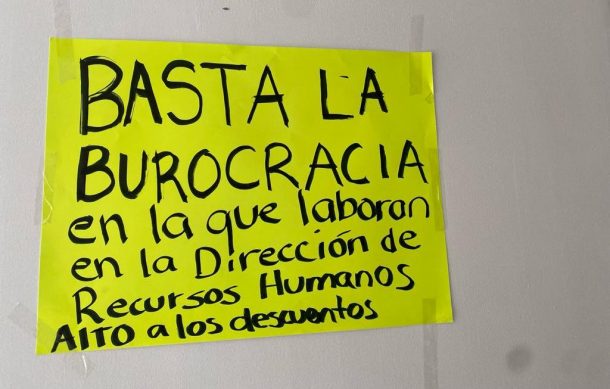 BASTA LA
BUROCRACIA
en la que laboran
en la Dirección de
Recursos Humanos
ALTO a los descuentos